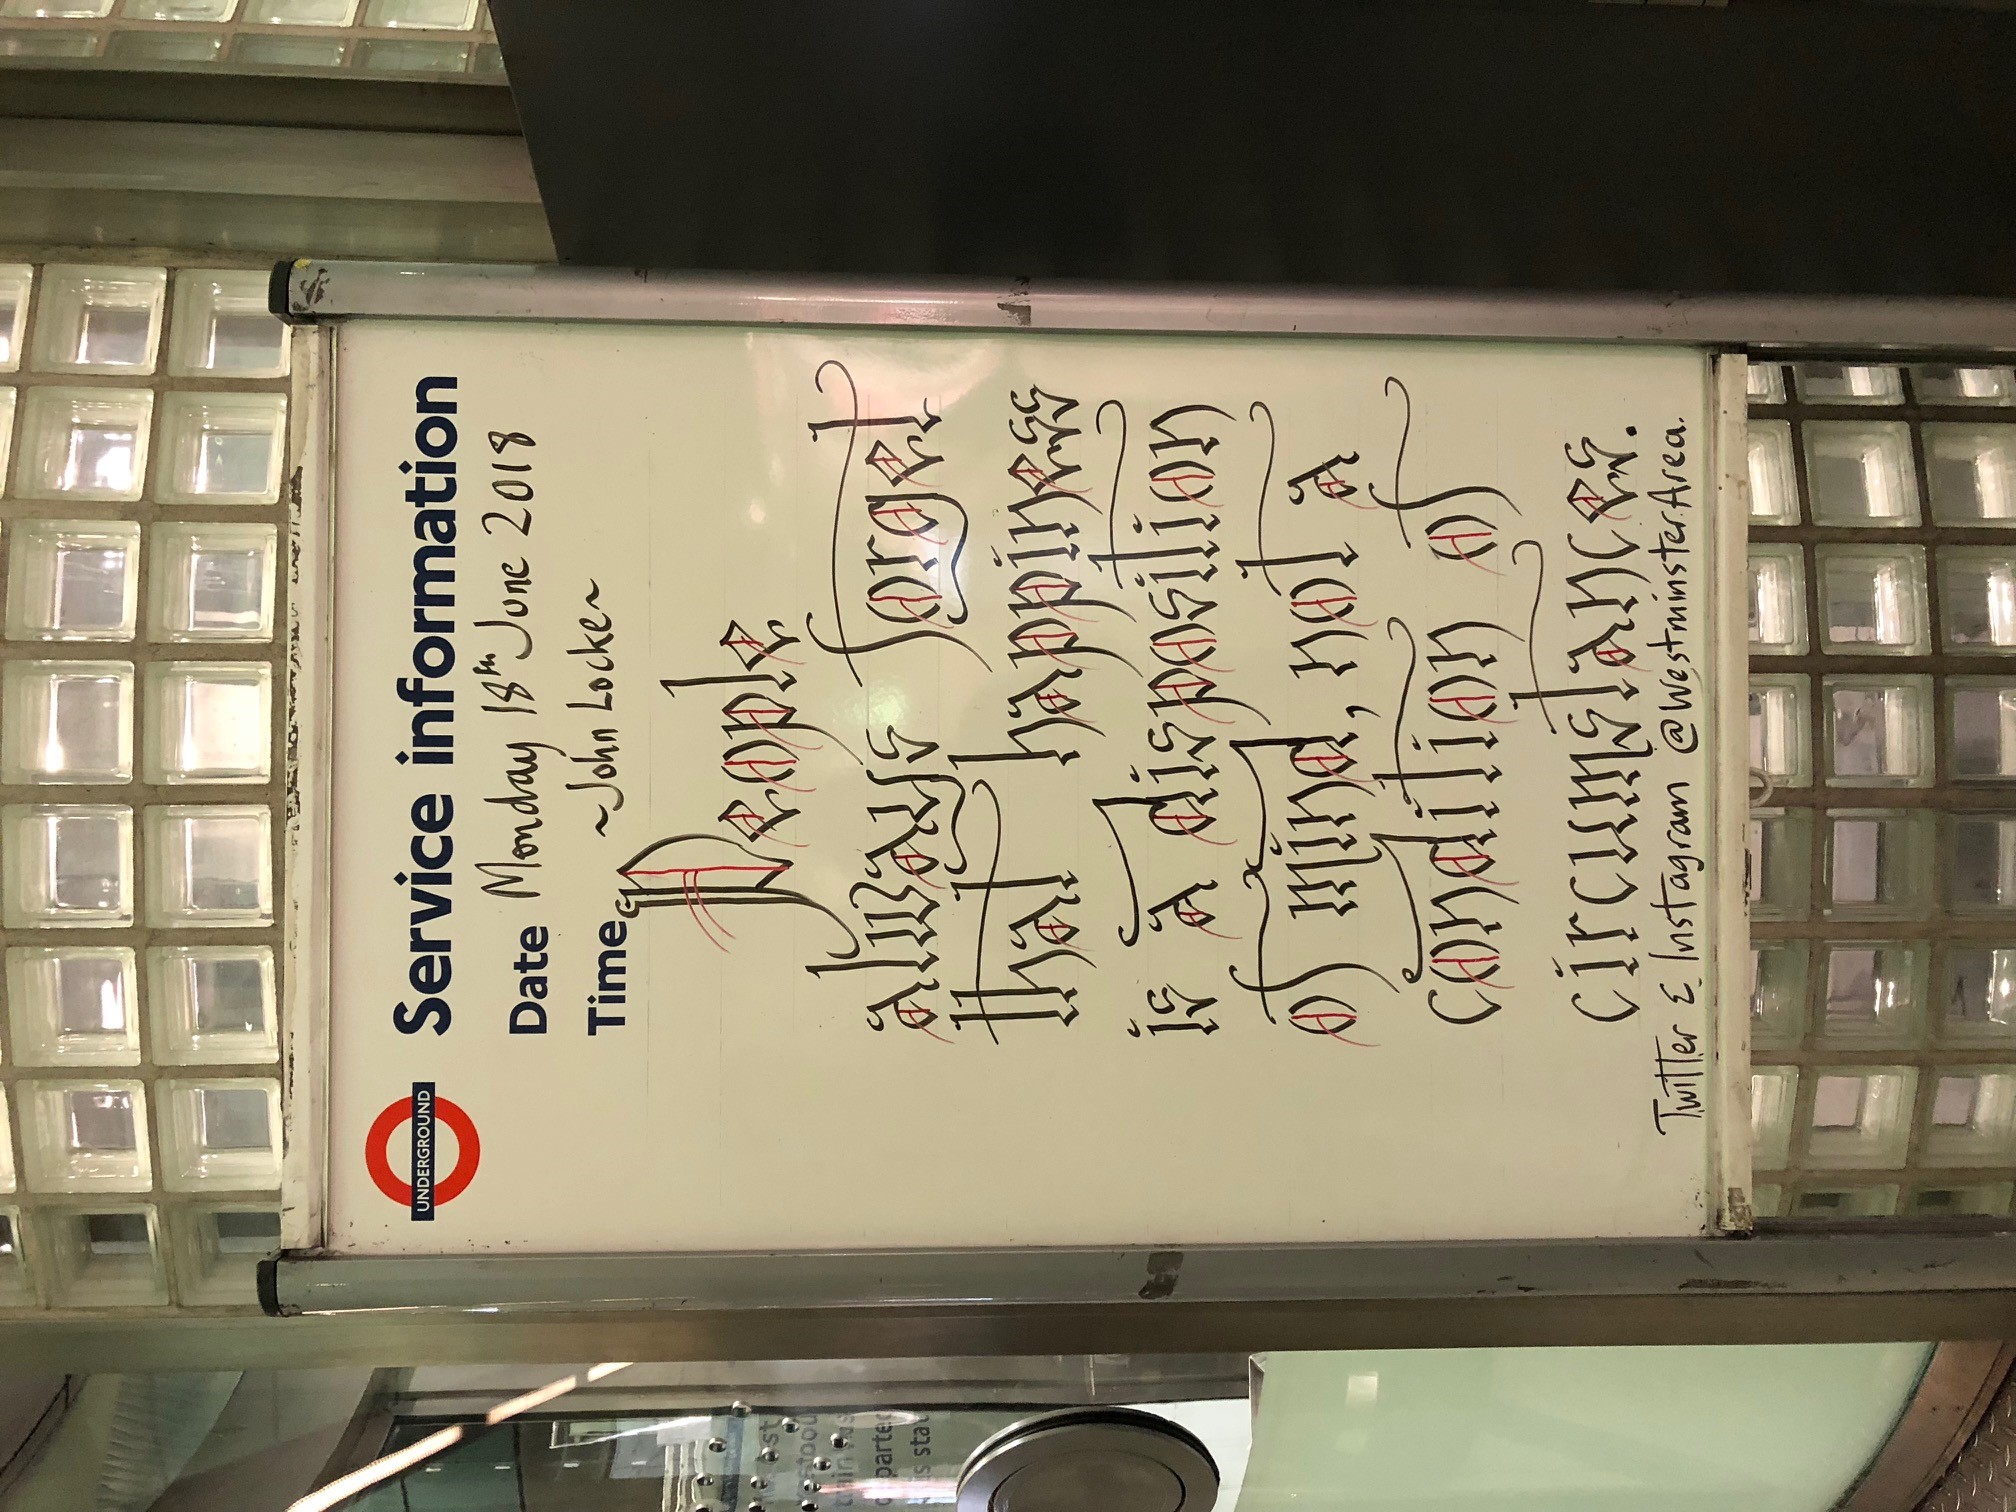 UNDERGROUND
Service information
Date Monday 18th June 2018
Time ~John Locke~
People
always forget
that happiness
is a disposition
of mind, not a
condition of
circumstances.
Twitter & Instagram @WestminsterArea.